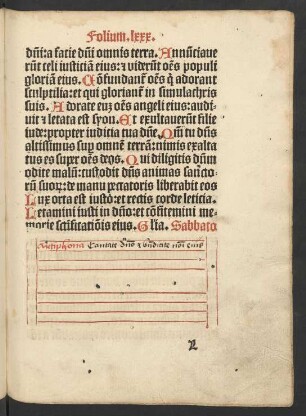 Folium.lxxx.
dñi:a facie dñi omnis terra. Annunciaue
runt celi iusticiā eius: ⁊ viderūt oēs populi
gloriā eius. Cōfundant᷑ oēs q̇ adorant
sculptilia: et qui gloriant᷑ in simulachris
suis. Adorate euȝ oēs angeli eius: audi-
uit ⁊ letata est syon. Et exultauerūt filie
iude: propter iudicia tua dñe. Qm̄ tu dñs
altissimus sup̱ omnē terrā: nimis exalta
tus es sup̱ oēs deos. Qui diligitis dñm
odite malū: custodit dñs animas sancto-
rū suoꝝ: de manu peccatoris liberabit eos
Lux orta est iusto: et rectis corde leticia.
Letamini iusti in dño: et cōfitemini me-
morie sctificatiōis eius. Glīa. Sabbato
Antiphona Cantate dño ⁊ bñdicite noī eius